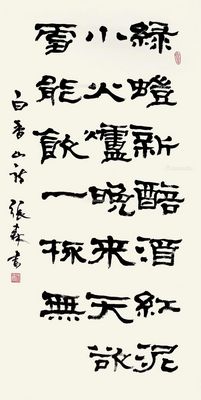 綠螘新醅酒紅泥
小火爐晚来天欲
雪能飲一杯無
白香山诗 張森书